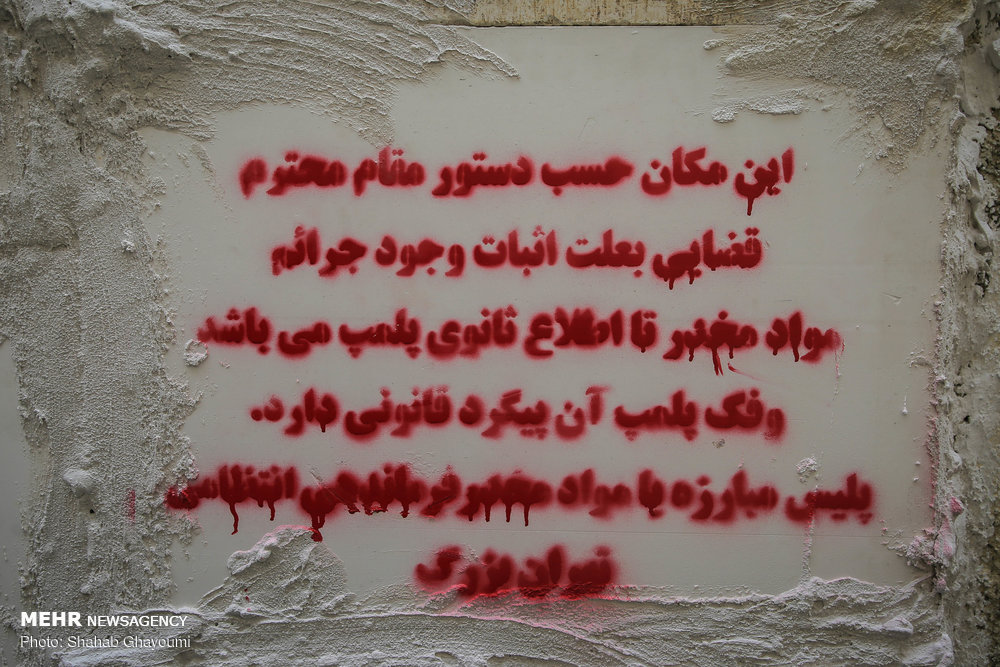 این مکان حسب دستور مقام محترم
قضایی بعلت اثبات وجود جرائم
مواد مخدر تا اطلاع ثانوی پلمپ می باشد
وفک پلمپ آن پیگرد قانونی دارد.
پلیس مبارزه با مواد مخدر فرماندهی انتظامی
تهران بزرگ
MEHR NEWSAGENCY
Photo: Shahab Ghayoumi